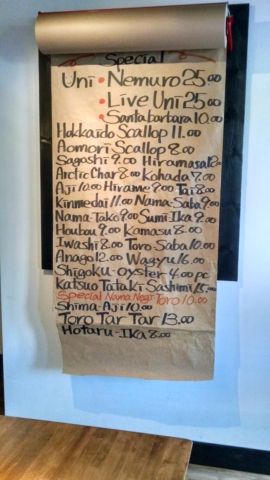 Special
Uni • Nemuro 25.00
• Live Uni 25.00
• Santa barbara 10.00
Hokkaido Scallop 11.00
Aomori Scallop 8.00
Sagoshi 9.00 Hiramasa
Arctic Char 8.00 Kohada 7.00
Aji 10.00 Hirame 9.00 Tai 8.00
Kinmedai 11.00 Nama-Saba 9.00
Nama-Tako 9.00 Sumi-Ika 9.00
Houbou 9.00 Kamasu 8.00
Iwashi 8.00 Toro-Saba 10.00
Anago 12.00 Wagyu 16.00
Shigoku-oyster 4.00 pc
Katsuo Tataki Sashimi
Special Nama Negi Toro 10.00
Shima-Aji 10.00
Toro Tar Tar 13.00
Hotaru-Ika 8.00